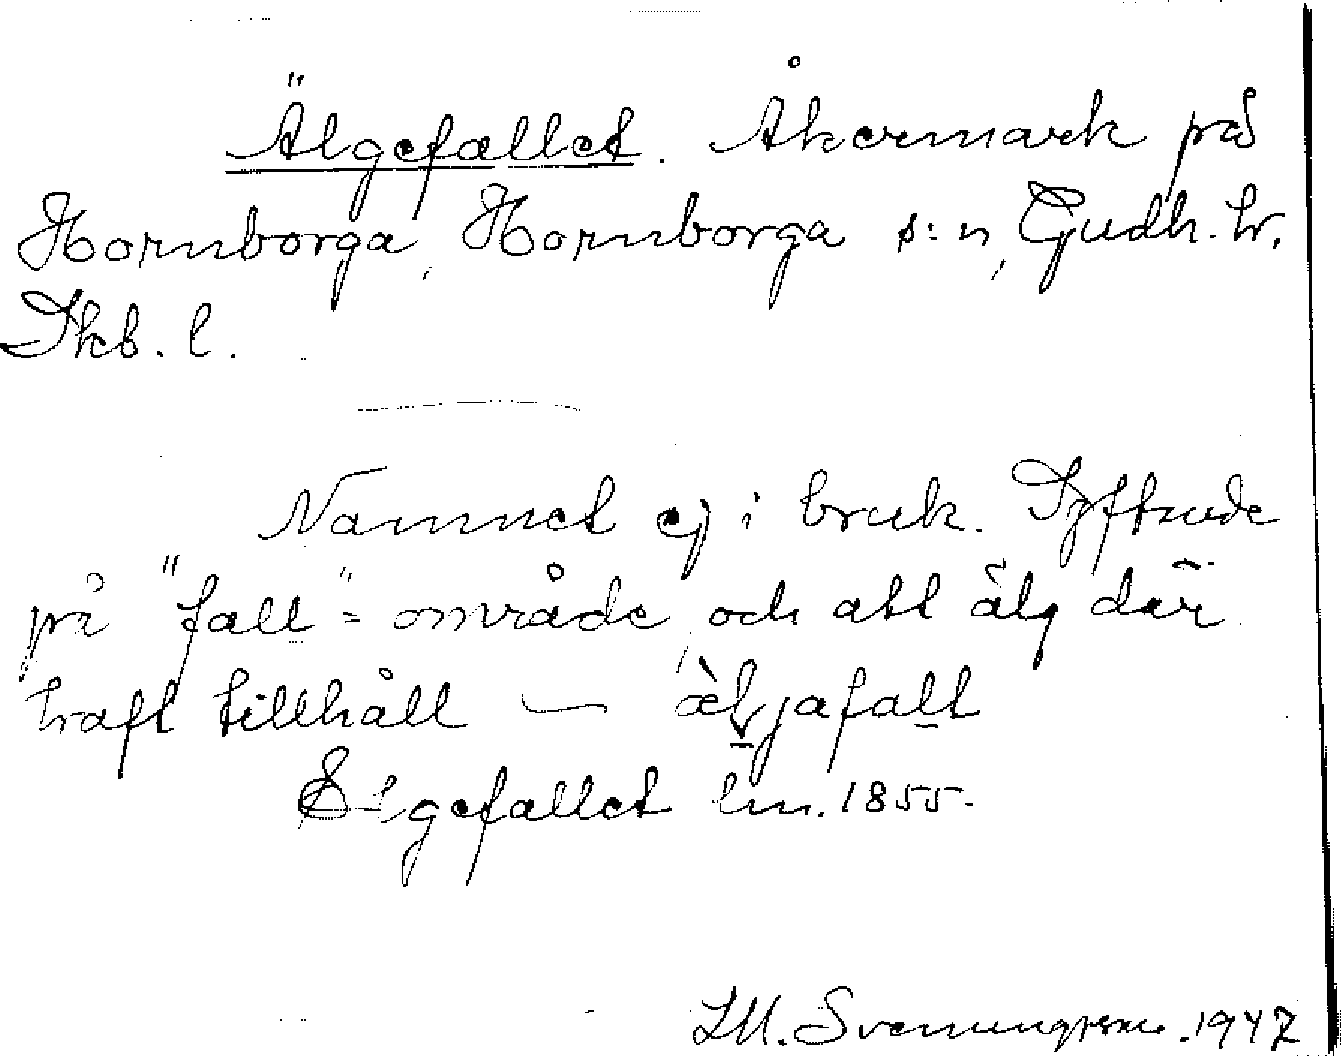 Älgefallet. Åkermark på
Hornborga, Hornborga s:n, Gudh. hr.
Skb. l.
Namnet ej i bruk. Syftande
på "fall"-område, och att älg där
haft tillhåll — æ̀ḷjafalt
Elgefallet lm. 1855.
LM. Svenungsson. 1947